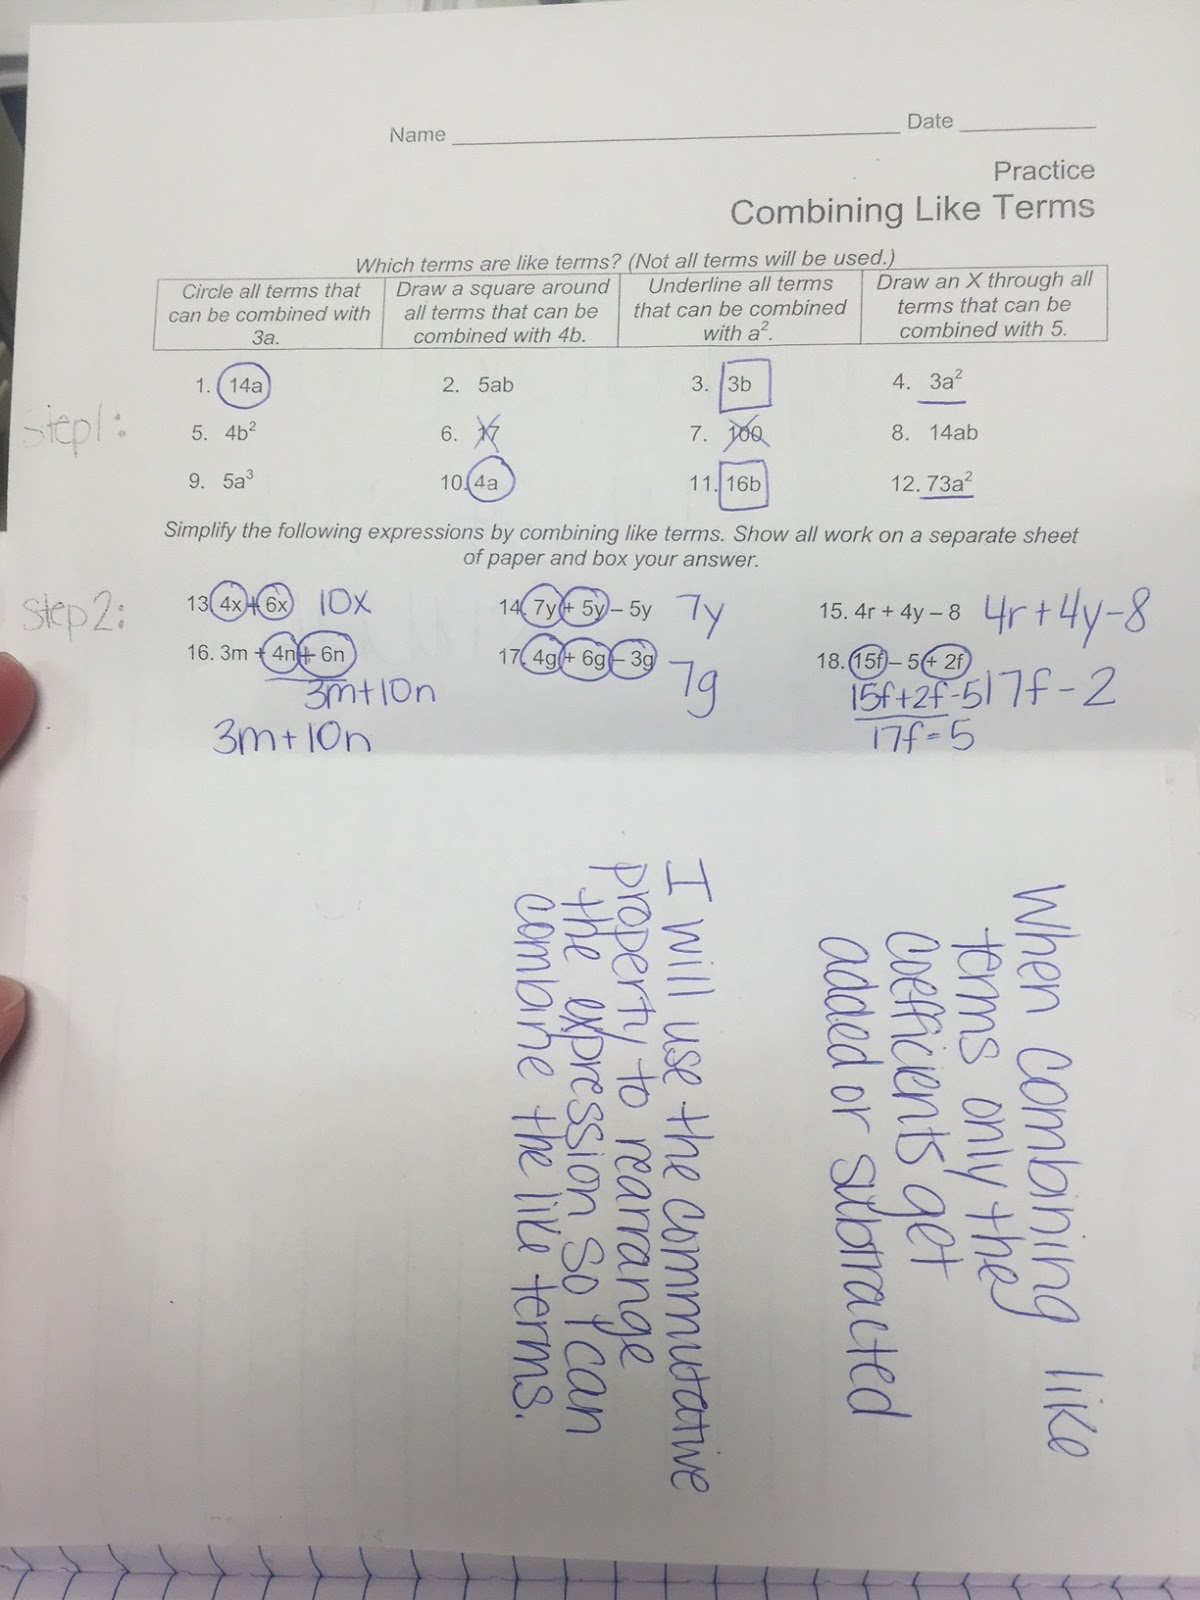 Name Date
Practice
Combining Like Terms
Which terms are like terms? (Not all terms will be used.)
Circle all terms that
can be combined with
3a.
Draw a square around
all terms that can be
combined with 4b.
Underline all terms
that can be combined
with a².
Draw an X through all
terms that can be
combined with 5.
1. 14a 2. 5ab 3. 3b 4. 3a²
Step 1:
5. 4b² 6. 17 7. 100 8. 14ab
9. 5a³ 10. 4a 11. 16b 12. 73a²
Simplify the following expressions by combining like terms. Show all work on a separate sheet
of paper and box your answer.
Step 2:
13. 4x + 6x 10x 14. 7y + 5y – 5y 7y 15. 4r + 4y – 8 4r+4y-8
16. 3m + 4n + 6n 17. 4g + 6g – 3g 7g 18. 15f – 5 + 2f
3m+10n 15f+2f-5 17f-2
3m+10n 17f-5
When combining like
terms only the
coefficients get
added or subtracted
I will use the commutative
property to rearrange
the expression so I can
combine the like terms.